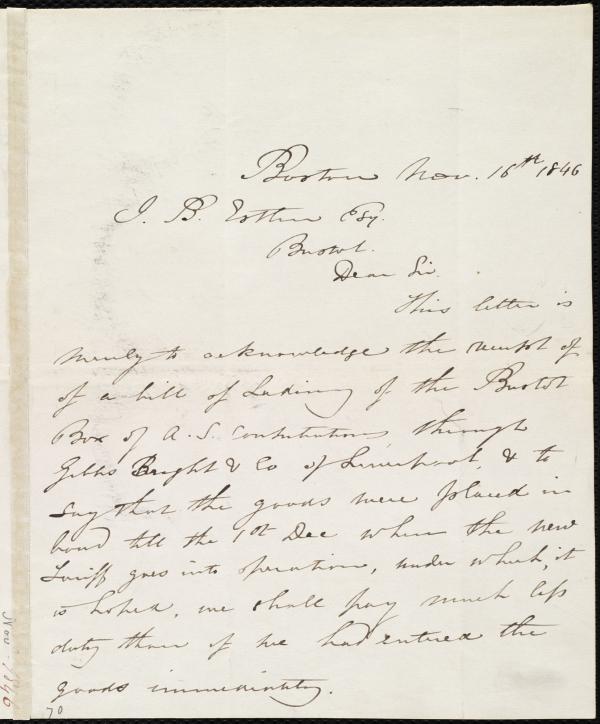 Boston Nov. 16th 1846
J. B. Estlin Esq.
Bristol.
Dear Sir.
This letter is
merely to acknowledge the receipt of
of a bill of Lading of the Bristol
Box of A. S. Contributions, through
Gibbs Bright & Co of Liverpool, & to
say that the goods were placed in
bond till the 1st Dec when the new
Tariff goes into operation, under which, it
is hoped, we shall pay much less
duty than if we had entered the
goods immediately.
70
Nov. 1846